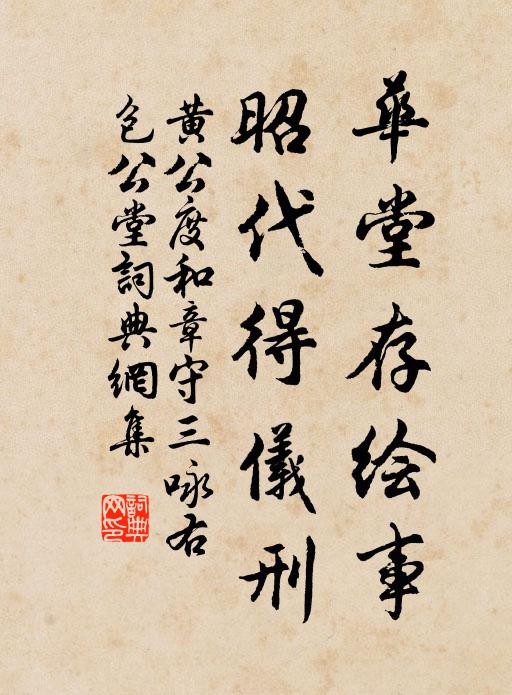 華堂存绘事
昭代得儀刑
黄公度和章守三咏右
包公堂詞典網集
詞典
网印